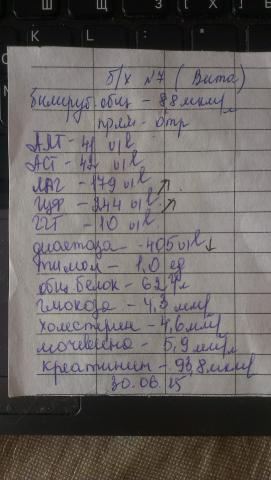 б/х №7 (Вита)
билируб. общ – 8,8 мкм/л
прям – отр
АЛТ – 41 u/l
АСТ – 42 u/l
ЛДГ – 179 u/l
ЩФ – 244 u/l ↗
ГГТ – 10 u/l ↗
диастаза – 405 u/l ↓
тимол – 1,0 ед
общ. белок – 62 г/л
глюкоза – 4,3 мм/л
холестерин – 4,6 мм/л
мочевина – 5,9 мм/л
креатинин – 93,8 мкм/л
30.06.15